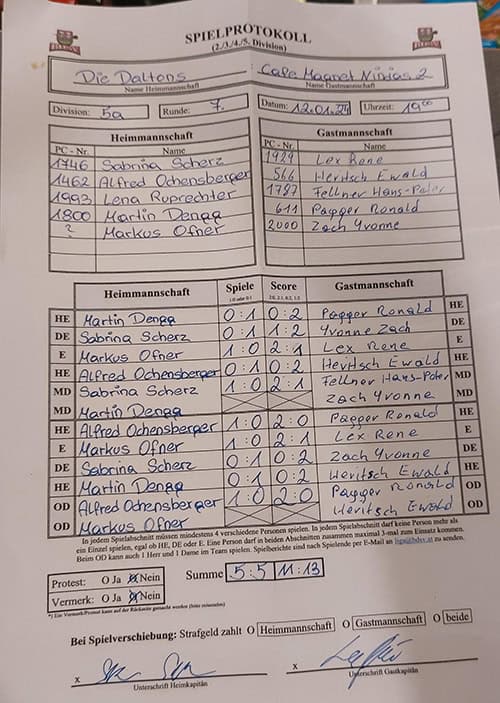 SPIELPROTOKOLL
(2./3./4./5. Division)
Die Daltons
Cafe Magnet Ninjas 2
Name Heimmannschaft
Name Gastmannschaft
Division: 5a Runde: 7. Datum: 12.01.24 Uhrzeit: 19 00
Heimmannschaft
PC - Nr. Name
1746 Sabrina Scherz
1462 Alfred Ochensberger
1993 Lena Ruprechter
1800 Martin Dengg
? Markus Ofner
Gastmannschaft
PC - Nr. Name
1929 Lex Rene
566 Heritsch Ewald
1787 Fellner Hans-Peter
611 Pagger Ronald
2000 Zach Yvonne
Heimmannschaft Spiele Score Gastmannschaft
1:0 oder 0:1 2:0, 2:1, 0:2, 1:2
HE Martin Dengg 0:1 0:2 Pagger Ronald HE
DE Sabrina Scherz 0:1 1:2 Yvonne Zach DE
E Markus Ofner 1:0 2:1 Lex Rene E
HE Alfred Ochensberger 0:1 0:2 Heritsch Ewald HE
MD Sabrina Scherz 1:0 2:1 Fellner Hans-Peter MD
MD Martin Dengg Zach Yvonne MD
HE Alfred Ochensberger 1:0 2:0 Pagger Ronald HE
E Markus Ofner 1:0 2:1 Lex Rene E
DE Sabrina Scherz 0:1 0:2 Zach Yvonne DE
HE Martin Dengg 0:1 0:2 Heritsch Ewald HE
OD Alfred Ochensberger 1:0 2:0 Pagger Ronald OD
OD Markus Ofner Heritsch Ewald OD
In jedem Spielabschnitt müssen mindestens 4 verschiedene Personen spielen. In jedem Spielabschnitt darf keine Person mehr als
ein Einzel spielen, egal ob HE, DE oder E. Eine Person darf in beiden Abschnitten zusammen maximal 3-mal zum Einsatz kommen.
Beim OD kann auch 1 Herr und 1 Dame im Team spielen. Spielberichte sind nach Spielende per E-Mail an zu senden.
Protest: O Ja Nein
Vermerk: O Ja Nein
Summe 5:5 11:13
*) Ein Vermerk/Protest kann auf der Rückseite gemacht werden (bitte ankreuzen)
Bei Spielverschiebung: Strafgeld zahlt O Heimmannschaft O Gastmannschaft O beide
x
x
Unterschrift Heimkapitän
Unterschrift Gastkapitän